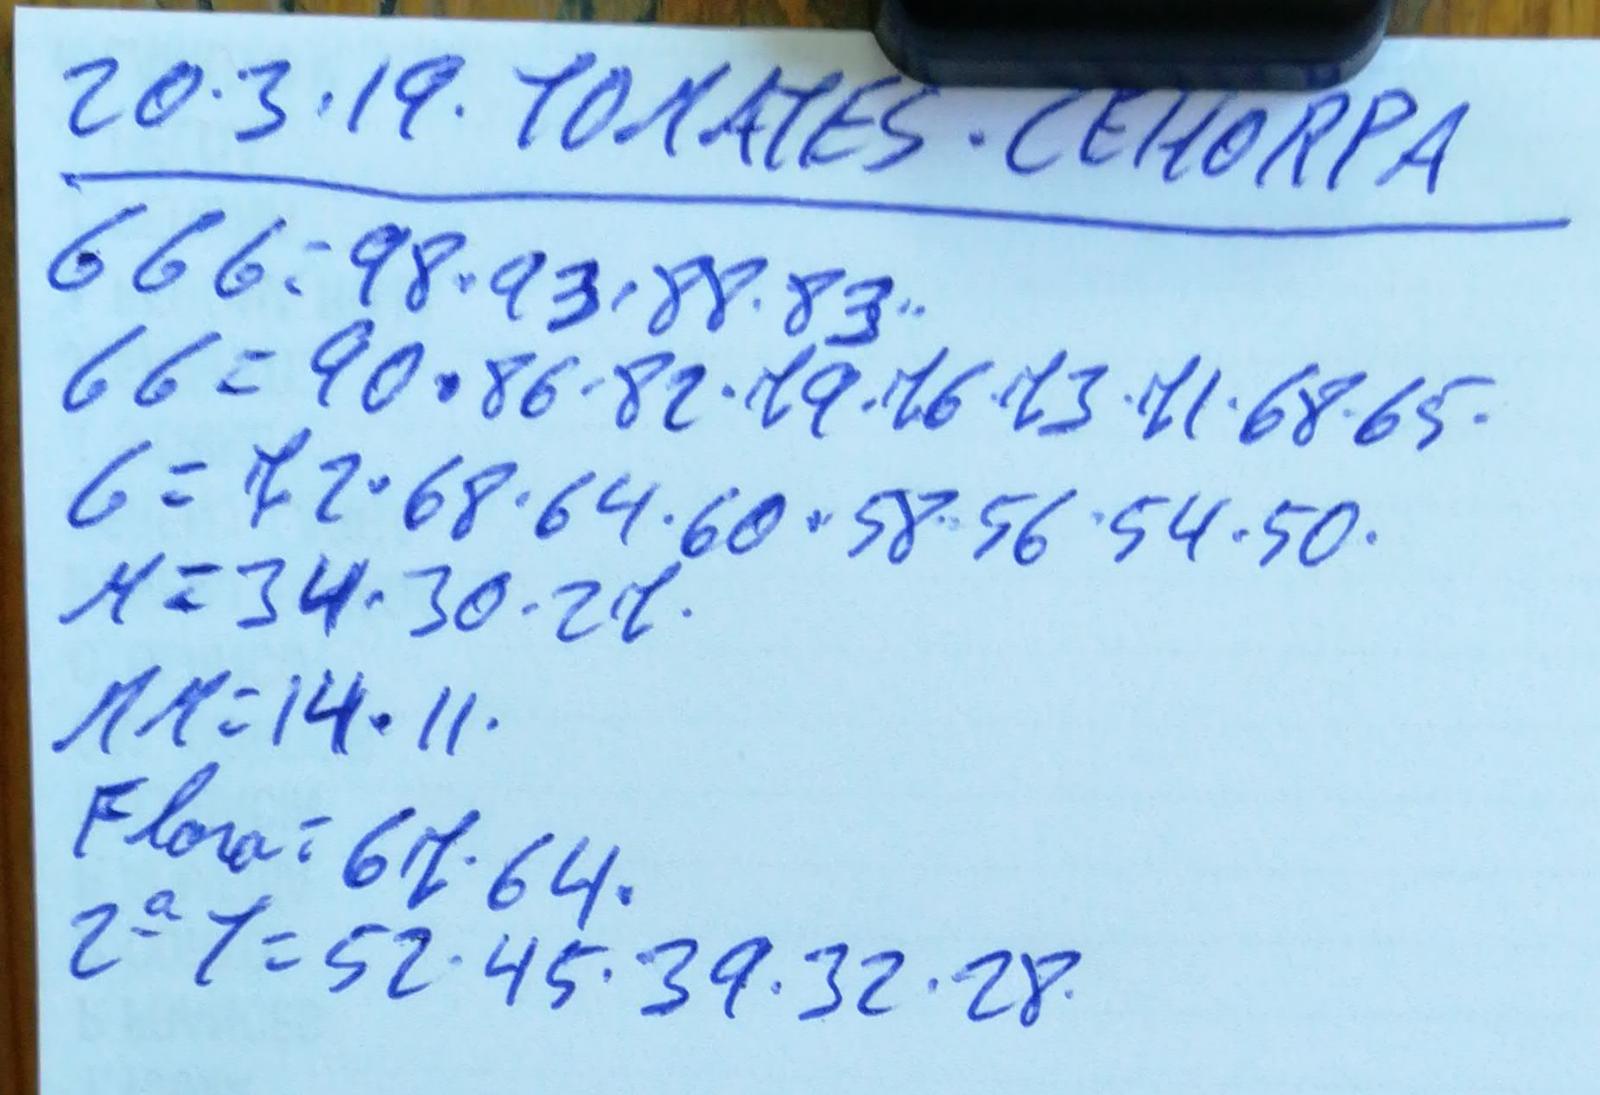 20.3.19. TOMATES. CEHORPA
GGG=98.93.88.83..
GG=90.86.82.79.76.73.71.68.65.
G=72.68.64.60.58.56.54.50.
M=34.30.27.
MM=14.11.
Flora=67.64.
2ª T=52.45.39.32.28.